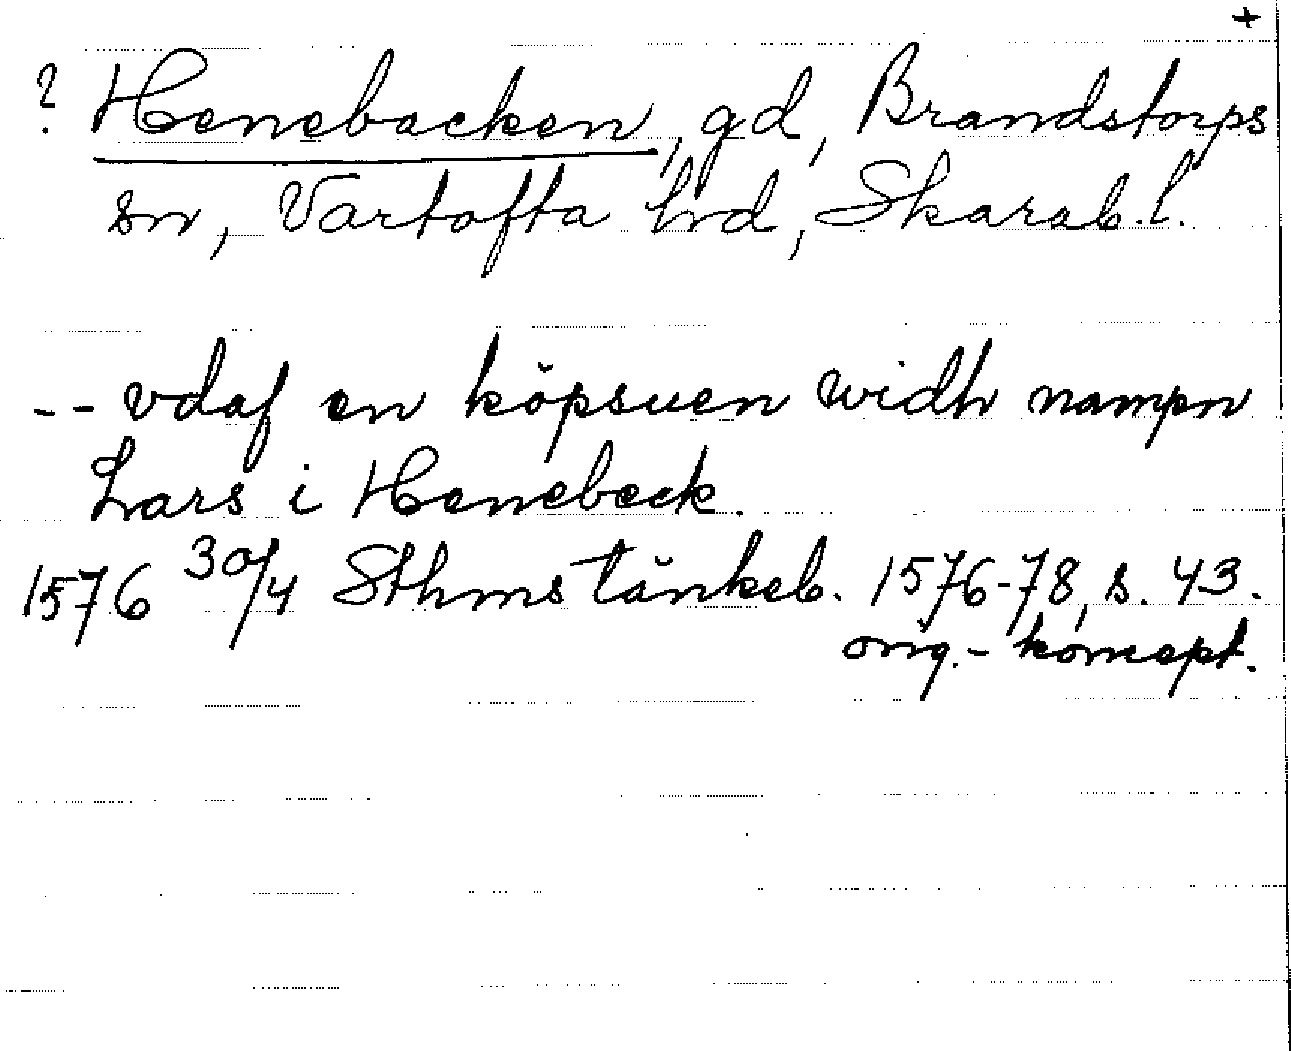 +
? Henebacken, gd, Brandstorps
sn, Vartofta hd, Skarab. l.
-- vdaf en köpsuen widh nampn
Lars i Henebeck.
1576 30/4 Sthms tänkeb. 1576-78, s. 43.
orig.- koncept.